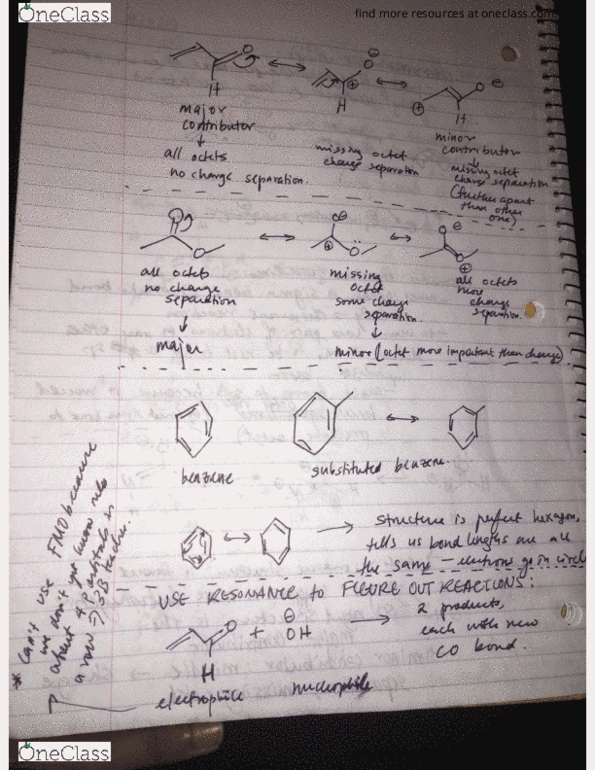 OneClass
find more resources at oneclass.com
O
⊖
O
⊕
⊕
O
⊖
H
H
H
major
contributor
all octets
no charge separation.
missing octet
charge separation
minor
contributor
missing octet
charge separation
(further apart
than other
one)
O
O
all octets
no charge
separation
major
O⊖
⊕
O
missing
octet
some charge
separation.
O
⊖
O
⊕
all octets
more
charge
separation.
minor (octet more important than charge)
benzene
substituted benzene.
structure is perfect hexagon,
tells us bond lengths are all
the same – electrons go in circle
USE RESONANCE to FIGURE OUT REACTIONS:
O
H
+
⊖
OH
2 products,
each with new
CO bond.
electrophile
nucleophile
* Can't use FMO because
we don't yet know rules
about 4 P orbitals in
a row
OneClass